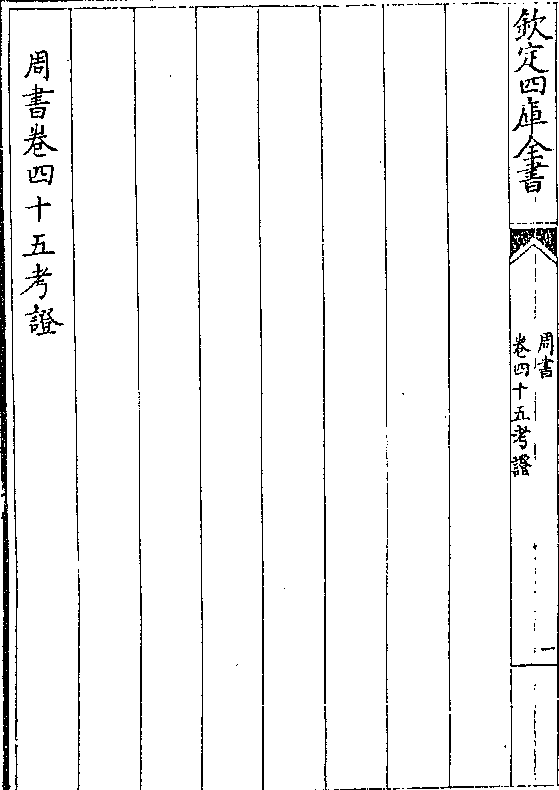 欽定四庫全書
周書
卷四十五考證
一
周書卷四十五考證